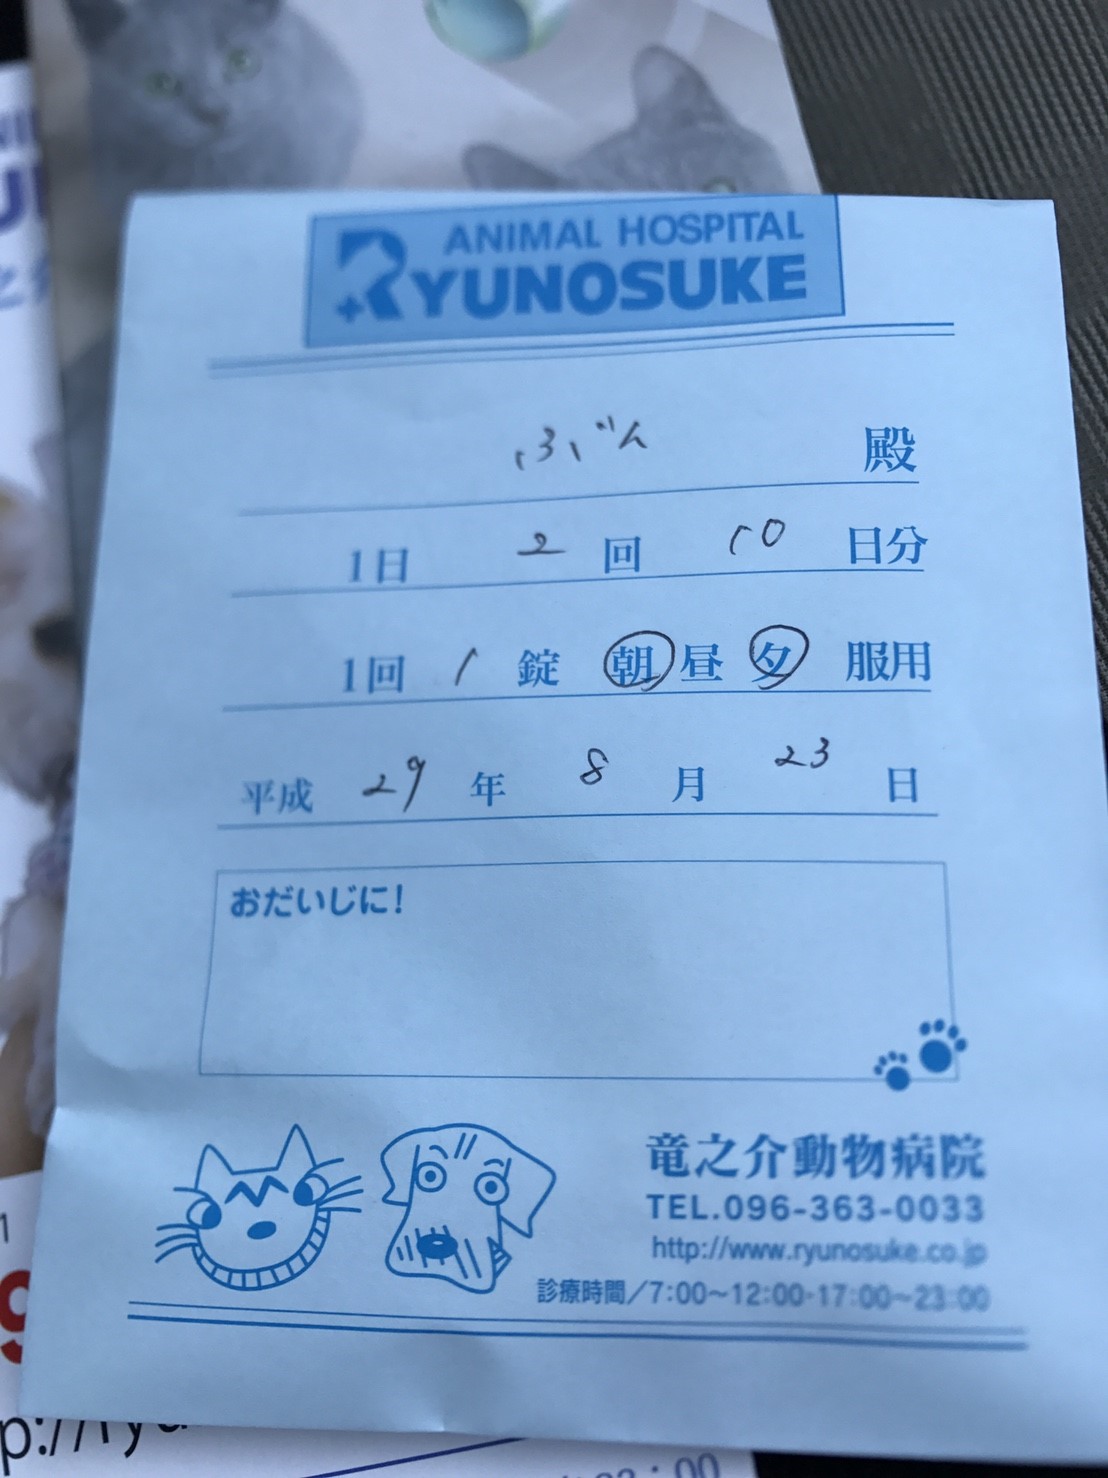 ANIMAL HOSPITAL
RYUNOSUKE
ぶん 殿
1日 2 回 10 日分
1回 1 錠 朝 昼 夕 服用
平成 29 年 8 月 23 日
おだいじに!
竜之介動物病院
TEL.096-363-0033
http://www.ryunosuke.co.jp
診療時間/7:00〜12:00-17:00〜23:00